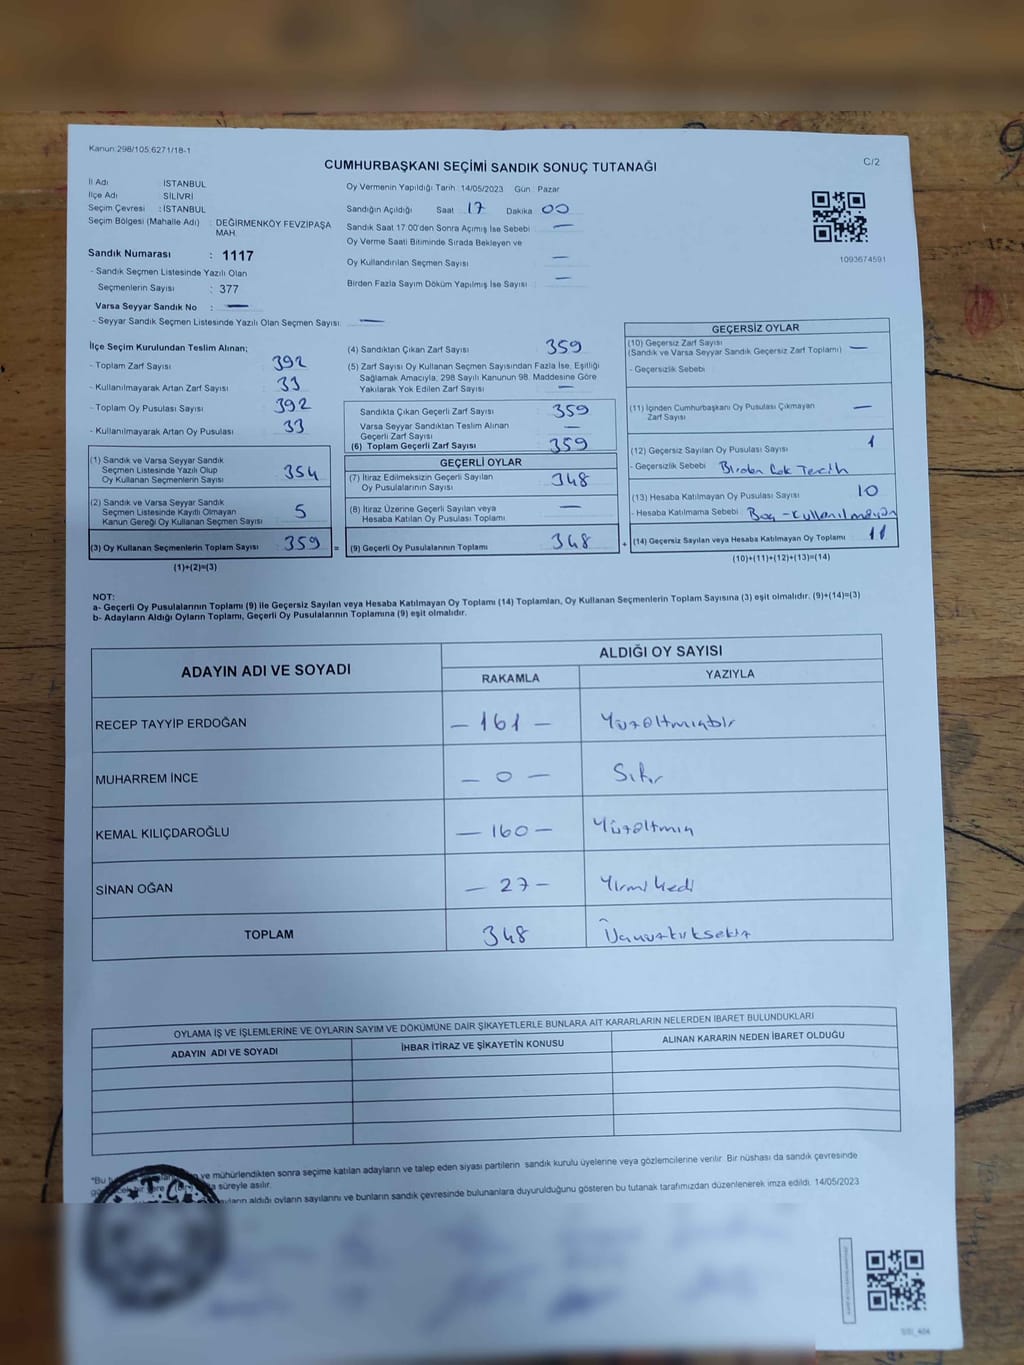 Kanun:298/105,6271/18-1
C/2
CUMHURBAŞKANI SEÇİMİ SANDIK SONUÇ TUTANAĞI
İl Adı : İSTANBUL
İlçe Adı : SİLİVRİ
Seçim Çevresi : İSTANBUL
Seçim Bölgesi (Mahalle Adı) : DEĞİRMENKÖY FEVZİPAŞA MAH.
Sandık Numarası : 1117
- Sandık Seçmen Listesinde Yazılı Olan
Seçmenlerin Sayısı : 377
Varsa Seyyar Sandık No : —
- Seyyar Sandık Seçmen Listesinde Yazılı Olan Seçmen Sayısı: —
Oy Vermenin Yapıldığı Tarih : 14/05/2023 Gün : Pazar
Sandığın Açıldığı Saat 17 Dakika 00
Sandık Saat 17:00'den Sonra Açımış İse Sebebi —
Oy Verme Saati Bitiminde Sırada Bekleyen ve
Oy Kullandırılan Seçmen Sayısı —
Birden Fazla Sayım Döküm Yapılmış İse Sayısı : —
1093674591
İlçe Seçim Kurulundan Teslim Alınan;
- Toplam Zarf Sayısı : 392
- Kullanılmayarak Artan Zarf Sayısı : 33
- Toplam Oy Pusulası Sayısı : 392
- Kullanılmayarak Artan Oy Pusulası : 33
(1) Sandık ve Varsa Seyyar Sandık
Seçmen Listesinde Yazılı Olup
Oy Kullanan Seçmenlerin Sayısı : 354
(2) Sandık ve Varsa Seyyar Sandık
Seçmen Listesinde Kayıtlı Olmayan
Kanun Gereği Oy Kullanan Seçmen Sayısı : 5
(3) Oy Kullanan Seçmenlerin Toplam Sayısı : 359 =
(1)+(2)=(3)
(4) Sandıktan Çıkan Zarf Sayısı : 359
(5) Zarf Sayısı Oy Kullanan Seçmen Sayısından Fazla İse, Eşitliği
Sağlamak Amacıyla, 298 Sayılı Kanunun 98. Maddesine Göre
Yakılarak Yok Edilen Zarf Sayısı : —
Sandıkta Çıkan Geçerli Zarf Sayısı : 359
Varsa Seyyar Sandıktan Teslim Alınan
Geçerli Zarf Sayısı : —
(6) Toplam Geçerli Zarf Sayısı : 359
GEÇERLİ OYLAR
(7) İtiraz Edilmeksizin Geçerli Sayılan
Oy Pusulalarının Sayısı : 348
(8) İtiraz Üzerine Geçerli Sayılan veya
Hesaba Katılan Oy Pusulası Toplamı : —
(9) Geçerli Oy Pusulalarının Toplamı : 348 +
GEÇERSİZ OYLAR
(10) Geçersiz Zarf Sayısı
(Sandık ve Varsa Seyyar Sandık Geçersiz Zarf Toplamı) —
- Geçersizlik Sebebi
(11) İçinden Cumhurbaşkanı Oy Pusulası Çıkmayan
Zarf Sayısı —
(12) Geçersiz Sayılan Oy Pusulası Sayısı 1
- Geçersizlik Sebebi Birden Çok Tercih
(13) Hesaba Katılmayan Oy Pusulası Sayısı 10
- Hesaba Katılmama Sebebi : Boş - Kullanılmayan
(14) Geçersiz Sayılan veya Hesaba Katılmayan Oy Toplamı 11
(10)+(11)+(12)+(13)=(14)
NOT:
a- Geçerli Oy Pusulalarının Toplamı (9) ile Geçersiz Sayılan veya Hesaba Katılmayan Oy Toplamı (14) Toplamları, Oy Kullanan Seçmenlerin Toplam Sayısına (3) eşit olmalıdır. (9)+(14)=(3)
b- Adayların Aldığı Oyların Toplamı, Geçerli Oy Pusulalarının Toplamına (9) eşit olmalıdır.
ADAYIN ADI VE SOYADI ALDIĞI OY SAYISI
RAKAMLA YAZIYLA
RECEP TAYYİP ERDOĞAN — 161 — Yüzaltmışbir
MUHARREM İNCE — 0 — Sıfır
KEMAL KILIÇDAROĞLU — 160 — Yüzaltmış
SİNAN OĞAN — 27 — Yirmi Yedi
TOPLAM 348 Üçyüzkırksekiz
OYLAMA İŞ VE İŞLEMLERİNE VE OYLARIN SAYIM VE DÖKÜMÜNE DAİR ŞİKAYETLERLE BUNLARA AİT KARARLARIN NELERDEN İBARET BULUNDUKLARI
ADAYIN ADI VE SOYADI İHBAR İTİRAZ VE ŞİKAYETİN KONUSU ALINAN KARARIN NEDEN İBARET OLDUĞU
"Bu ve mühürlendikten sonra seçime katılan adayların ve talep eden siyasi partilerin sandık kurulu üyelerine veya gözlemcilerine verilir. Bir nüshası da sandık çevresinde
süreyle asılır.
aldığı oyların sayılarını ve bunların sandık çevresinde bulunanlara duyurulduğunu gösteren bu tutanak tarafımızdan düzenlenerek imza edildi. 14/05/2023
T.C.